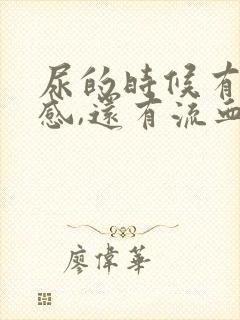 尿的時候有
感,還有流血
廖偉華